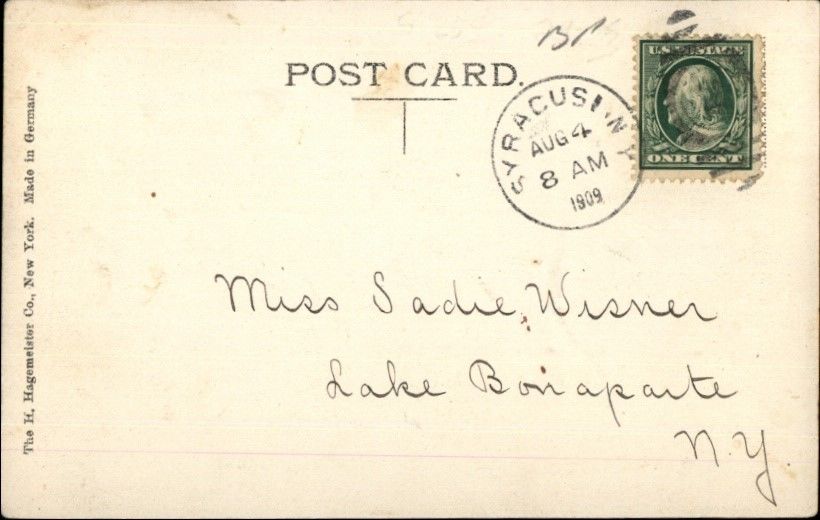 BP
POST CARD.
U.S. POSTAGE
ONE CENT
SYRACUSE N.Y.
AUG 4
8 AM
1909
Miss Sadie Wisner
Lake Bonaparte
N.Y
The H. Hagemeister Co., New York. Made in Germany